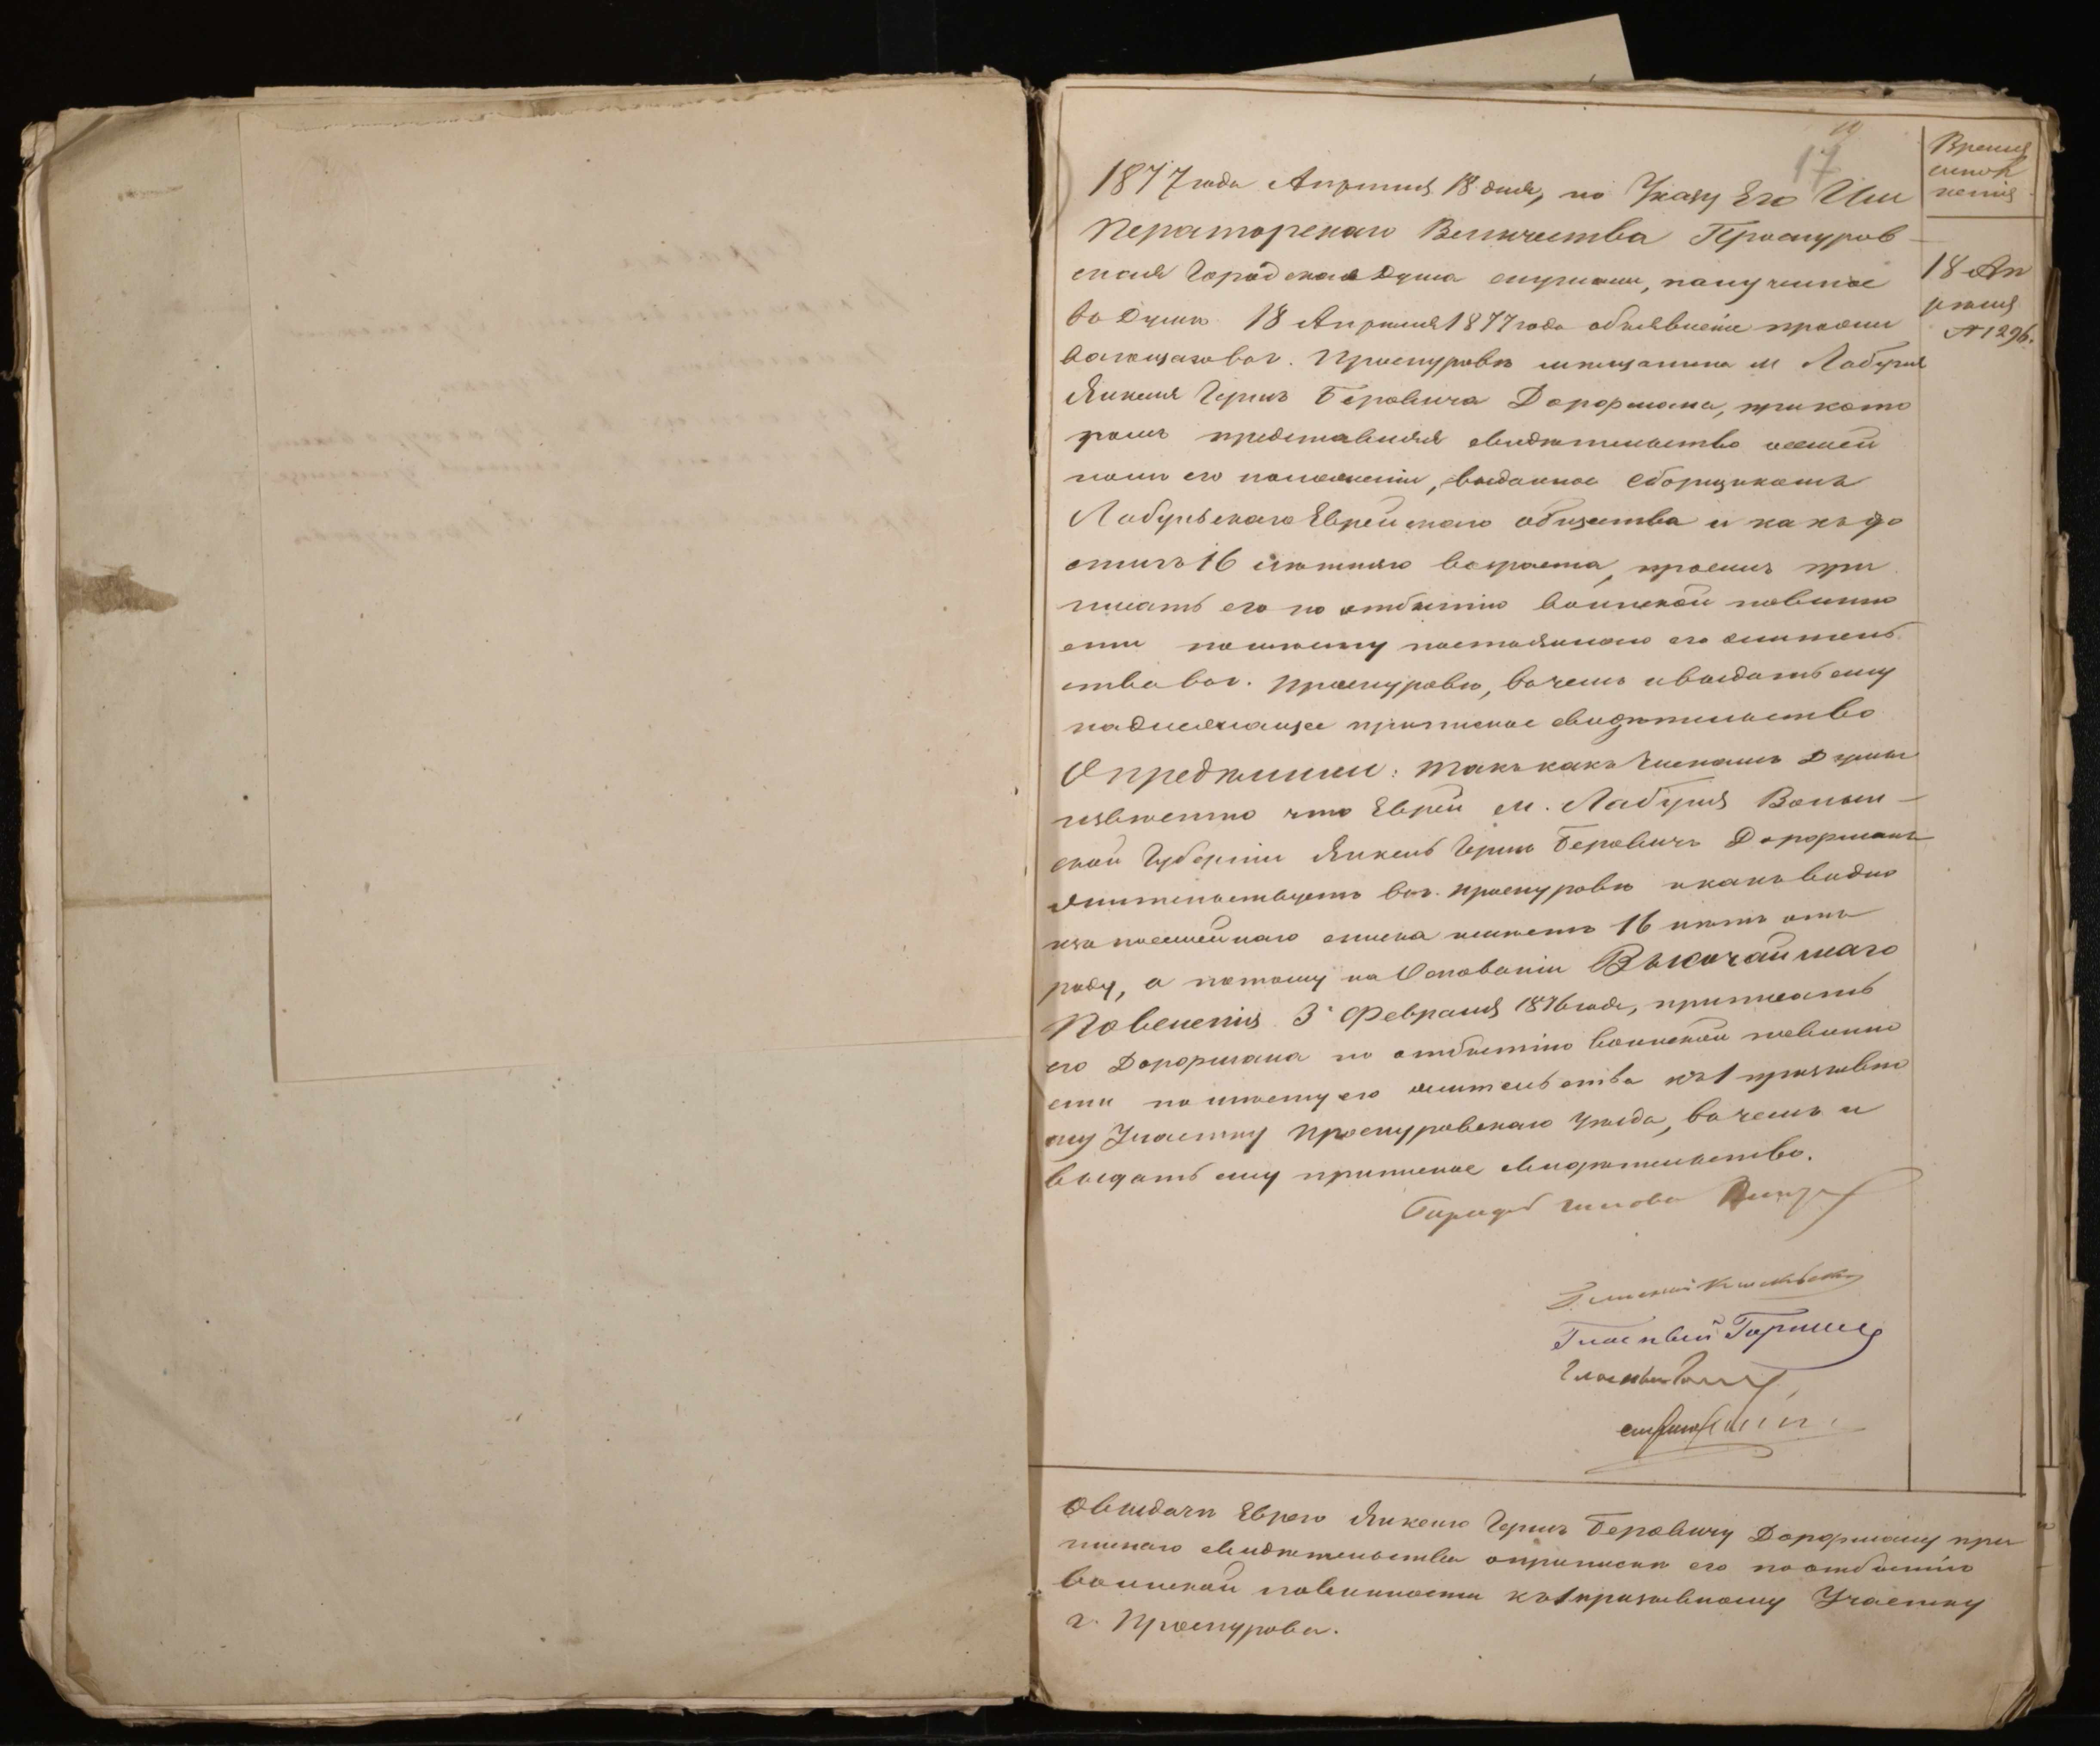 17
Время
испол
ненія
18 Ап
рѣля
№ 1296.
1877 года Апрѣля 18 дня, по Указу Его Им
ператорскаго Величества Проскуров
ская Городская Дума слушали, полученное
въ Думѣ 18 Апрѣля 1877 года объявленіе прожи
вающаго въ г. Проскуровѣ мѣщанина м Лабуня
Янкеля Герша Беровича Дорфмана, при кото
ромъ представляя свидѣтельство о семей
номъ его положеніи, выданное Сборщикомъ
Лабуньскаго Еврейскаго общества и какъ до
стигъ 16 лѣтняго возраста, проситъ при
писать его по отбытію воинской повинно
сти по мѣсту постояннаго его жительс
ства въ г. Проскуровѣ, въ чемъ и выдать ему
надлежащее приписное свидѣтельство
Опредѣлили: такъ какъ Членамъ Думы
извѣстно что Еврей м. Лабуня Волын-
ской Губерніи Янкель Гершъ Беровичъ Дорфманъ
жительствуетъ въ г. Проскуровѣ и какъ видно
изъ посемейнаго списка имѣетъ 16 лѣтъ отъ
роду, а потому на Основаніи Высочайшаго
Повеленія 3 Февраля 1876 года, приписать
его Дорфмана по отбытію воинской повинно
сти по мѣсту его жительства къ 1 призывно
му Участку Проскуровскаго уѣзда, въ чемъ и
выдать ему приписное свидѣтельство.
Городской голова
Гласный
Гласный
О выдачѣ Еврею Янкелю Гершъ Беровичу Дорфману при
писнаго свидѣтельства о припискѣ его по отбытію
воинской повинности къ 1 призывному Участку
г. Проскурова.